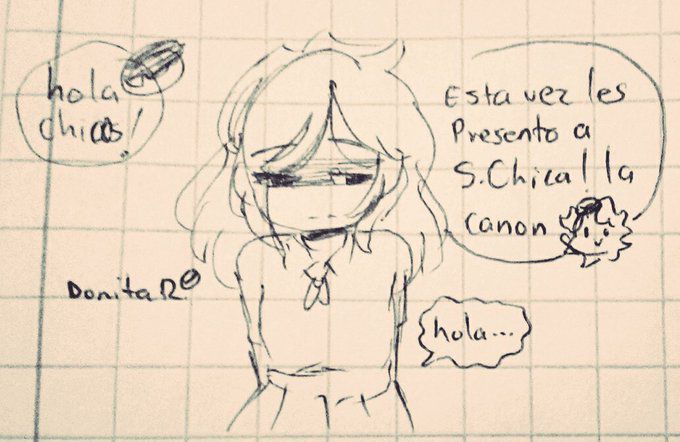 hola
chicos!
Esta vez les
Presento a
S.Chica! la
canon
Donita R.
hola...